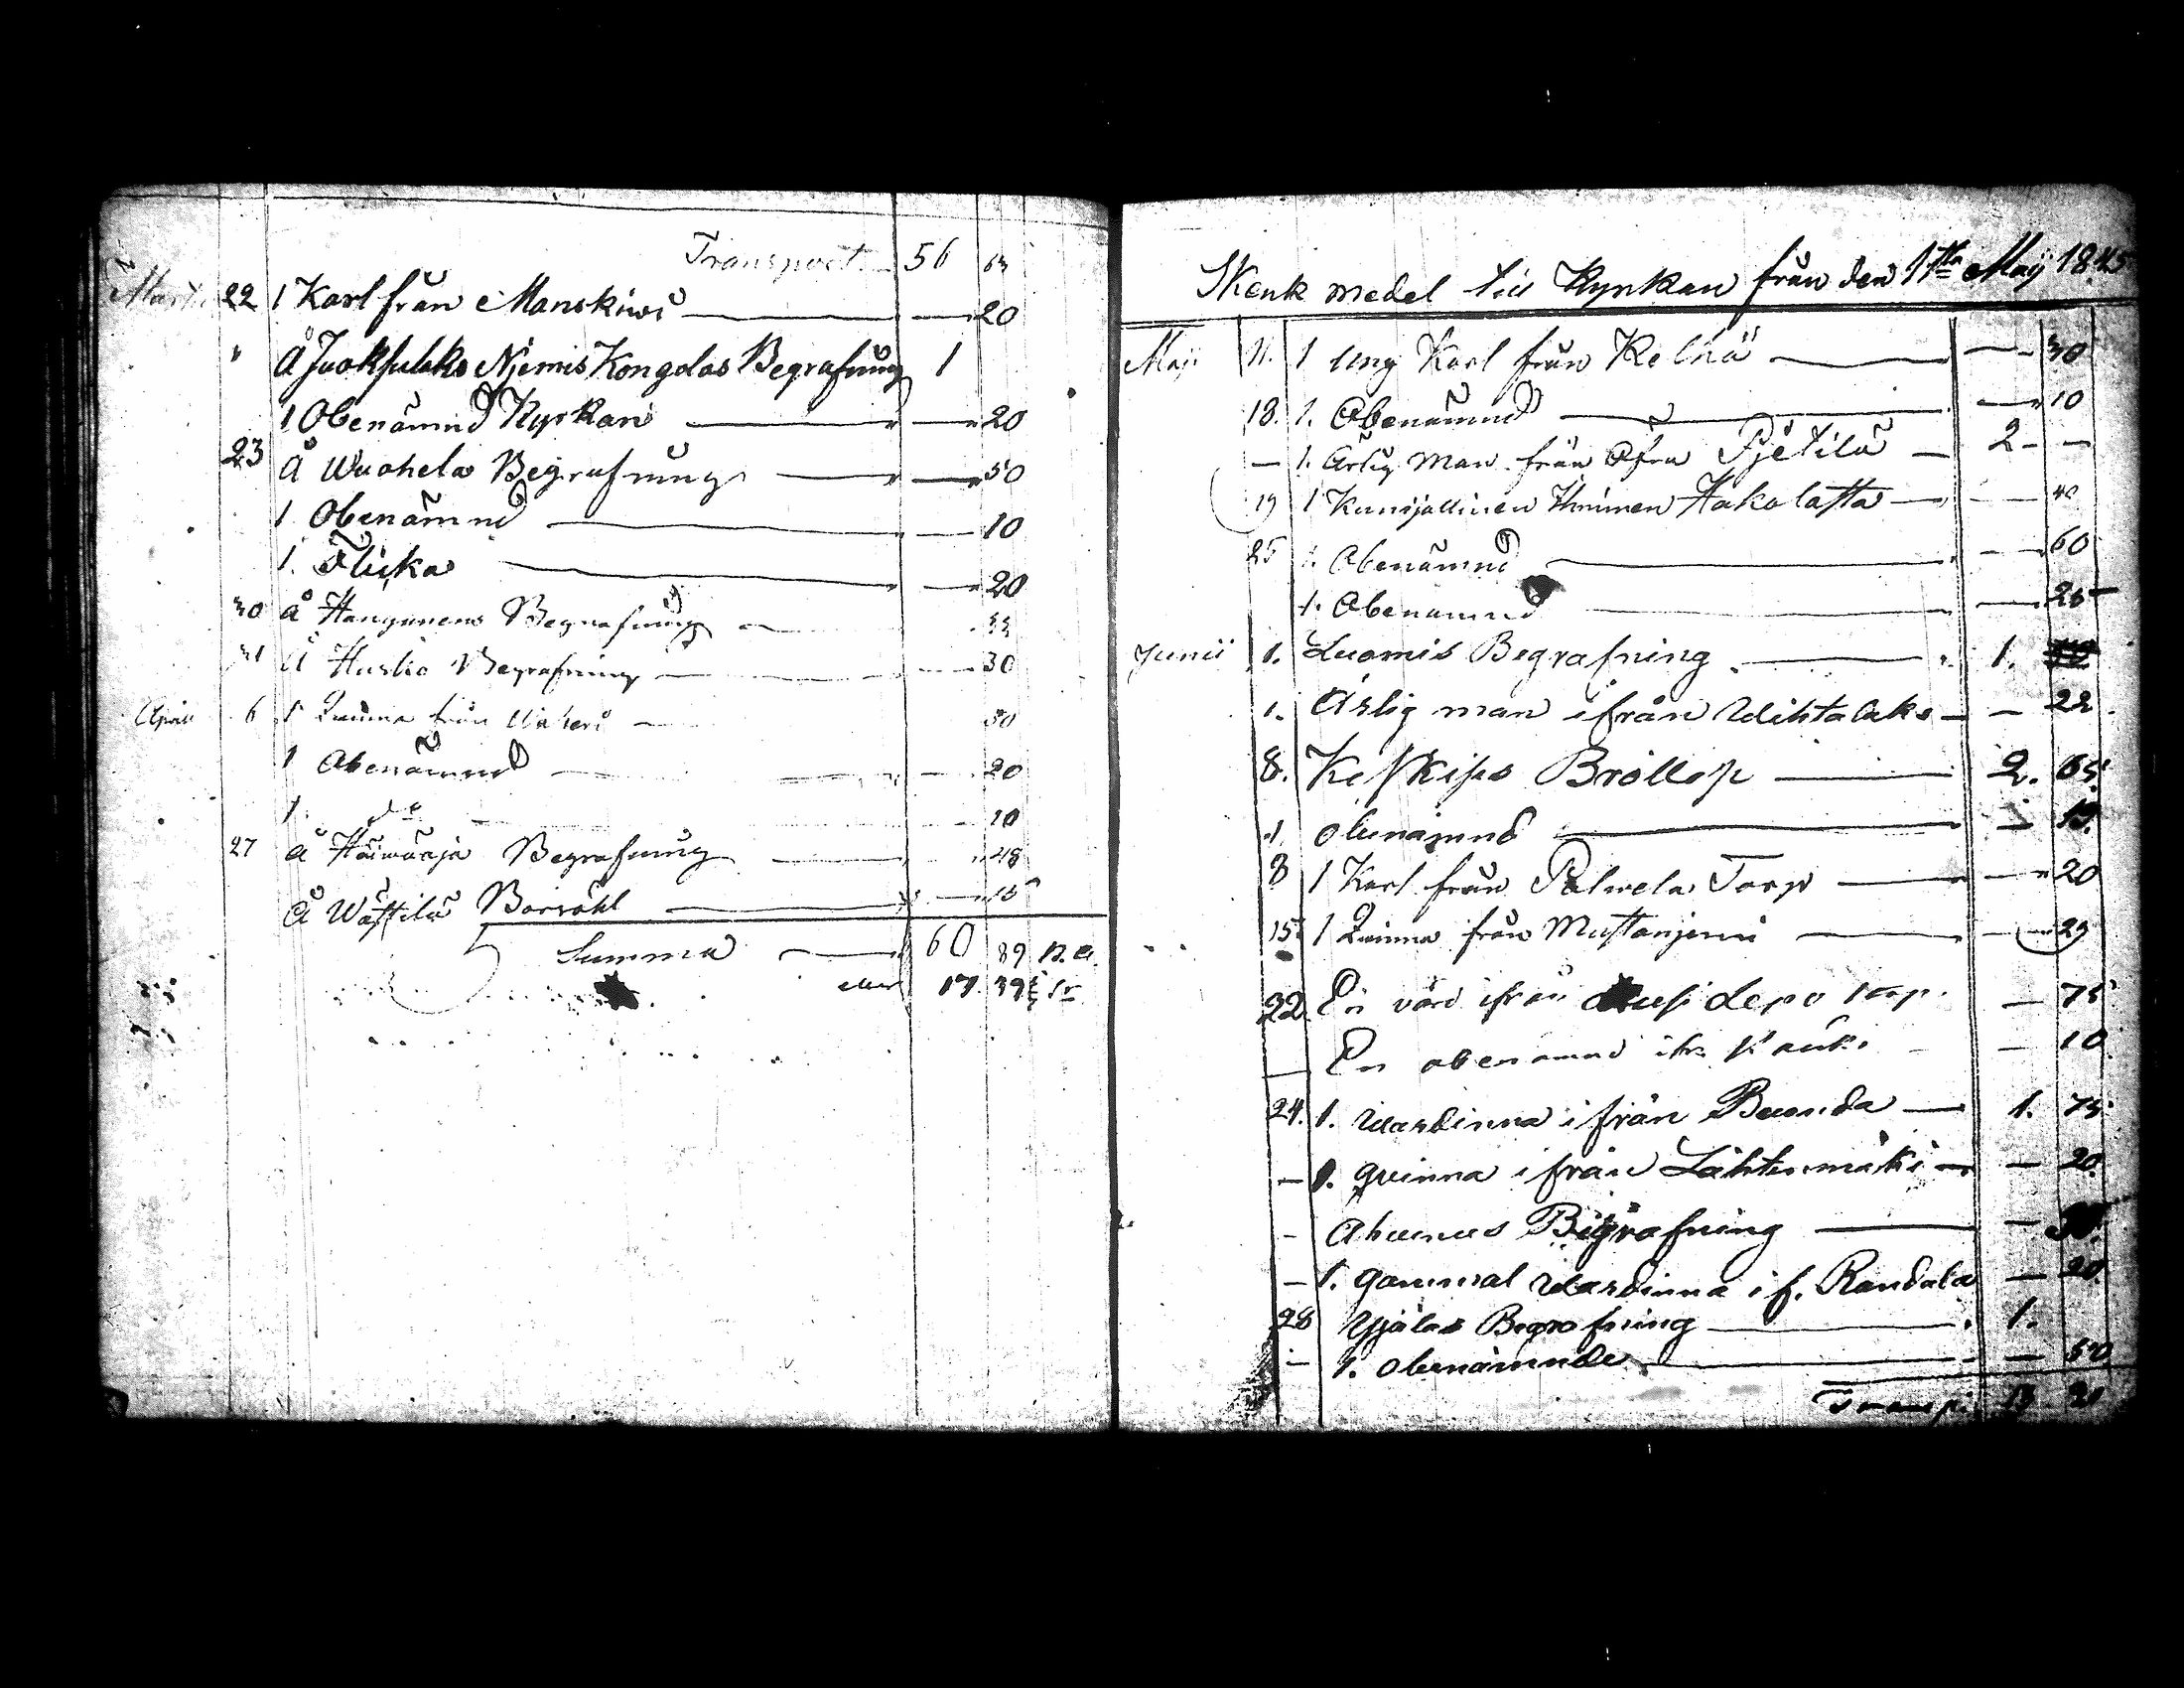 Transport 56 63
Martii 22 1 Karl från Manskiwi — 20
" Å Juoksulaks Njemis Kongolas Begrafning 1
1 Obenämnd Kyrkan — 20
23 Å Wuohela Begrafning — 50
1 Obenämnd — 10
1. Flicka — 20
30 å Hangunens Begrafning 33
31 Å Husko Begrafning — 30
April 6 1 Quinna från 50
1 Obenämnd — 20
1. do — 10
27 å Häiwäoja Begrafning 48
Å Wästilä Barsöhl — 15
Summa — 60 89 R.A.
eller 17. 39 Sr
Skenk medel till Kyrkan från den 1ta Maij 1845
Maji 11. 1 Ung Karl från Kelhä — 30
18. 1. Obenämnd — 10
— 1. Ärlig Man från Öfra Pjetilä — 2 - —
19 1 Kunijallinen Ihminen Hakolasta — 40
25 1. Obenämnd — 60
1. Obenämnd — 25
Junii 1. Luomis Begrafning — 1.
1. Ärlig man ifrån Wihtalaks — 22
8. Keskips Bröllop — 2. 65
1. obenämnd — 13.
8 1 Karl från Palwela Torp — 20
15. 1 Quinna från Mustanjemi — 29
22. En värd ifrån Lepo torp. — 75
— En obenämnd ifr. Kauki — 10
24. 1. Wardinna ifrån Buonda — 1. 75
— 1. qvinna ifrån Lähtenmäki — 20.
- Ahuenus Begrafning —
— 1. gammal Wardinna i f. Randala — 20
28 Yjälas Begrafning — 1.
— 1. obenämnde — 50
Transp. 13 21